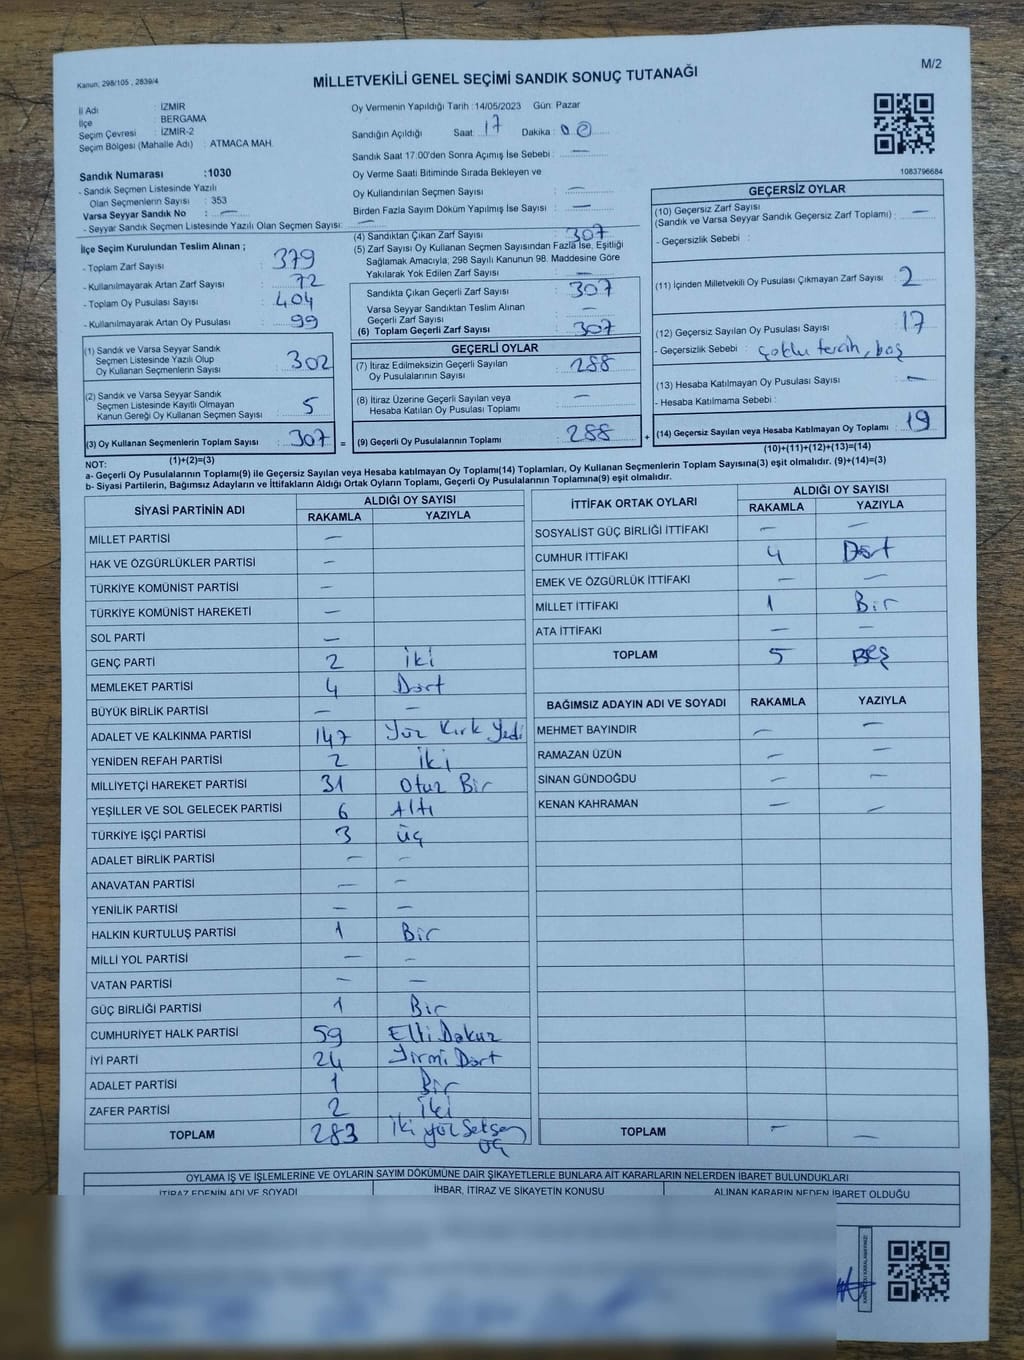 Kanun; 298/105 , 2839/4
MİLLETVEKİLİ GENEL SEÇİMİ SANDIK SONUÇ TUTANAĞI
M/2
İl Adı : İZMİR
İlçe : BERGAMA
Seçim Çevresi : İZMİR-2
Seçim Bölgesi (Mahalle Adı) : ATMACA MAH.
Sandık Numarası :1030
- Sandık Seçmen Listesinde Yazılı
Olan Seçmenlerin Sayısı : 353
Varsa Seyyar Sandık No : —
- Seyyar Sandık Seçmen Listesinde Yazılı Olan Seçmen Sayısı: —
İlçe Seçim Kurulundan Teslim Alınan ;
- Toplam Zarf Sayısı : 379
- Kullanılmayarak Artan Zarf Sayısı : 72
- Toplam Oy Pusulası Sayısı : 404
- Kullanılmayarak Artan Oy Pusulası : 99
(1) Sandık ve Varsa Seyyar Sandık
Seçmen Listesinde Yazılı Olup
Oy Kullanan Seçmenlerin Sayısı : 302
(2) Sandık ve Varsa Seyyar Sandık
Seçmen Listesinde Kayıtlı Olmayan
Kanun Gereği Oy Kullanan Seçmen Sayısı : 5
(3) Oy Kullanan Seçmenlerin Toplam Sayısı : 307 =
(1)+(2)=(3)
Oy Vermenin Yapıldığı Tarih :14/05/2023 Gün: Pazar
Sandığın Açıldığı Saat 17 Dakika : 00
Sandık Saat 17:00'den Sonra Açımış İse Sebebi : —
Oy Verme Saati Bitiminde Sırada Bekleyen ve
Oy Kullandırılan Seçmen Sayısı : —
Birden Fazla Sayım Döküm Yapılmış İse Sayısı : —
(4) Sandıktan Çıkan Zarf Sayısı : 307
(5) Zarf Sayısı Oy Kullanan Seçmen Sayısından Fazla İse, Eşitliği
Sağlamak Amacıyla; 298 Sayılı Kanunun 98. Maddesine Göre
Yakılarak Yok Edilen Zarf Sayısı : —
Sandıkta Çıkan Geçerli Zarf Sayısı : 307
Varsa Seyyar Sandıktan Teslim Alınan
Geçerli Zarf Sayısı : —
(6) Toplam Geçerli Zarf Sayısı : 307
GEÇERLİ OYLAR
(7) İtiraz Edilmeksizin Geçerli Sayılan
Oy Pusulalarının Sayısı : 288
(8) İtiraz Üzerine Geçerli Sayılan veya
Hesaba Katılan Oy Pusulası Toplamı : —
(9) Geçerli Oy Pusulalarının Toplamı : 288 +
1083796684
GEÇERSİZ OYLAR
(10) Geçersiz Zarf Sayısı
(Sandık ve Varsa Seyyar Sandık Geçersiz Zarf Toplamı) : —
- Geçersizlik Sebebi :
(11) İçinden Milletvekili Oy Pusulası Çıkmayan Zarf Sayısı : 2
(12) Geçersiz Sayılan Oy Pusulası Sayısı : 17
- Geçersizlik Sebebi : çoklu tercih, boş
(13) Hesaba Katılmayan Oy Pusulası Sayısı : —
- Hesaba Katılmama Sebebi :
(14) Geçersiz Sayılan veya Hesaba Katılmayan Oy Toplamı : 19
(10)+(11)+(12)+(13)=(14)
NOT:
a- Geçerli Oy Pusulalarının Toplamı(9) ile Geçersiz Sayılan veya Hesaba katılmayan Oy Toplamı(14) Toplamları, Oy Kullanan Seçmenlerin Toplam Sayısına(3) eşit olmalıdır. (9)+(14)=(3)
b- Siyasi Partilerin, Bağımsız Adayların ve İttifakların Aldığı Ortak Oyların Toplamı, Geçerli Oy Pusulalarının Toplamına(9) eşit olmalıdır.
SİYASİ PARTİNİN ADI ALDIĞI OY SAYISI
RAKAMLA YAZIYLA
MİLLET PARTİSİ —
HAK VE ÖZGÜRLÜKLER PARTİSİ —
TÜRKİYE KOMÜNİST PARTİSİ —
TÜRKİYE KOMÜNİST HAREKETİ —
SOL PARTİ —
GENÇ PARTİ 2 İki
MEMLEKET PARTİSİ 4 Dört
BÜYÜK BİRLİK PARTİSİ — —
ADALET VE KALKINMA PARTİSİ 147 Yüz Kırk Yedi
YENİDEN REFAH PARTİSİ 2 İki
MİLLİYETÇİ HAREKET PARTİSİ 31 Otuz Bir
YEŞİLLER VE SOL GELECEK PARTİSİ 6 Altı
TÜRKİYE İŞÇİ PARTİSİ 3 üç
ADALET BİRLİK PARTİSİ — —
ANAVATAN PARTİSİ — —
YENİLİK PARTİSİ — —
HALKIN KURTULUŞ PARTİSİ 1 Bir
MİLLİ YOL PARTİSİ — —
VATAN PARTİSİ — —
GÜÇ BİRLİĞİ PARTİSİ 1 Bir
CUMHURİYET HALK PARTİSİ 59 Elli Dokuz
İYİ PARTİ 24 Yirmi Dört
ADALET PARTİSİ 1 Bir
ZAFER PARTİSİ 2 İki
TOPLAM 283 İki yüz Seksen
üç
İTTİFAK ORTAK OYLARI ALDIĞI OY SAYISI
RAKAMLA YAZIYLA
SOSYALİST GÜÇ BİRLİĞİ İTTİFAKI — —
CUMHUR İTTİFAKI 4 Dört
EMEK VE ÖZGÜRLÜK İTTİFAKI — —
MİLLET İTTİFAKI 1 Bir
ATA İTTİFAKI — —
TOPLAM 5 Beş
BAĞIMSIZ ADAYIN ADI VE SOYADI RAKAMLA YAZIYLA
MEHMET BAYINDIR — —
RAMAZAN ÜZÜN — —
SİNAN GÜNDOĞDU — —
KENAN KAHRAMAN — —
TOPLAM — —
OYLAMA İŞ VE İŞLEMLERİNE VE OYLARIN SAYIM DÖKÜMÜNE DAİR ŞİKAYETLERLE BUNLARA AİT KARARLARIN NELERDEN İBARET BULUNDUKLARI
İTİRAZ EDENİN ADI VE SOYADI İHBAR, İTİRAZ VE ŞİKAYETİN KONUSU ALINAN KARARIN NEDEN İBARET OLDUĞU